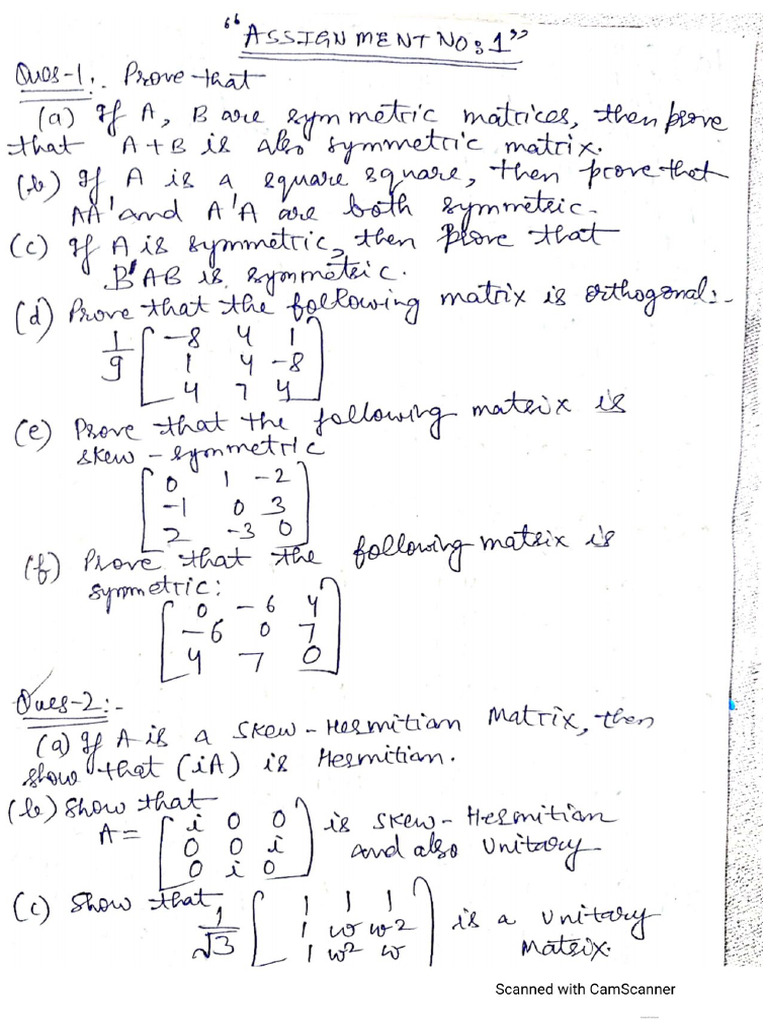 "ASSIGNMENT NO: 1"
Ques-1:. Prove that
(a) If A, B are symmetric matrices, then prove
that A+B is also symmetric matrix.
(b) If A is a square square, then prove that
AA' and A'A are both symmetric.
(c) If A is symmetric, then prove that
B'AB is symmetric.
(d) Prove that the following matrix is orthogonal:-
1/9 [ -8 4 1
1 4 -8
4 7 4 ]
(e) Prove that the following matrix is
skew-symmetric
[ 0 1 -2
-1 0 3
2 -3 0 ]
(f) Prove that the following matrix is
symmetric:
[ 0 -6 4
-6 0 7
4 7 0 ]
Ques-2:-
(a) If A is a skew-Hermitian Matrix, then
show that (iA) is Hermitian.
(b) Show that
A = [ i 0 0
0 0 i
0 i 0 ] is skew-Hermitian
and also Unitary.
(c) Show that
1/√3 [ 1 1 1
1 w w2
1 w2 w ] is a unitary
matrix.
Scanned with CamScanner